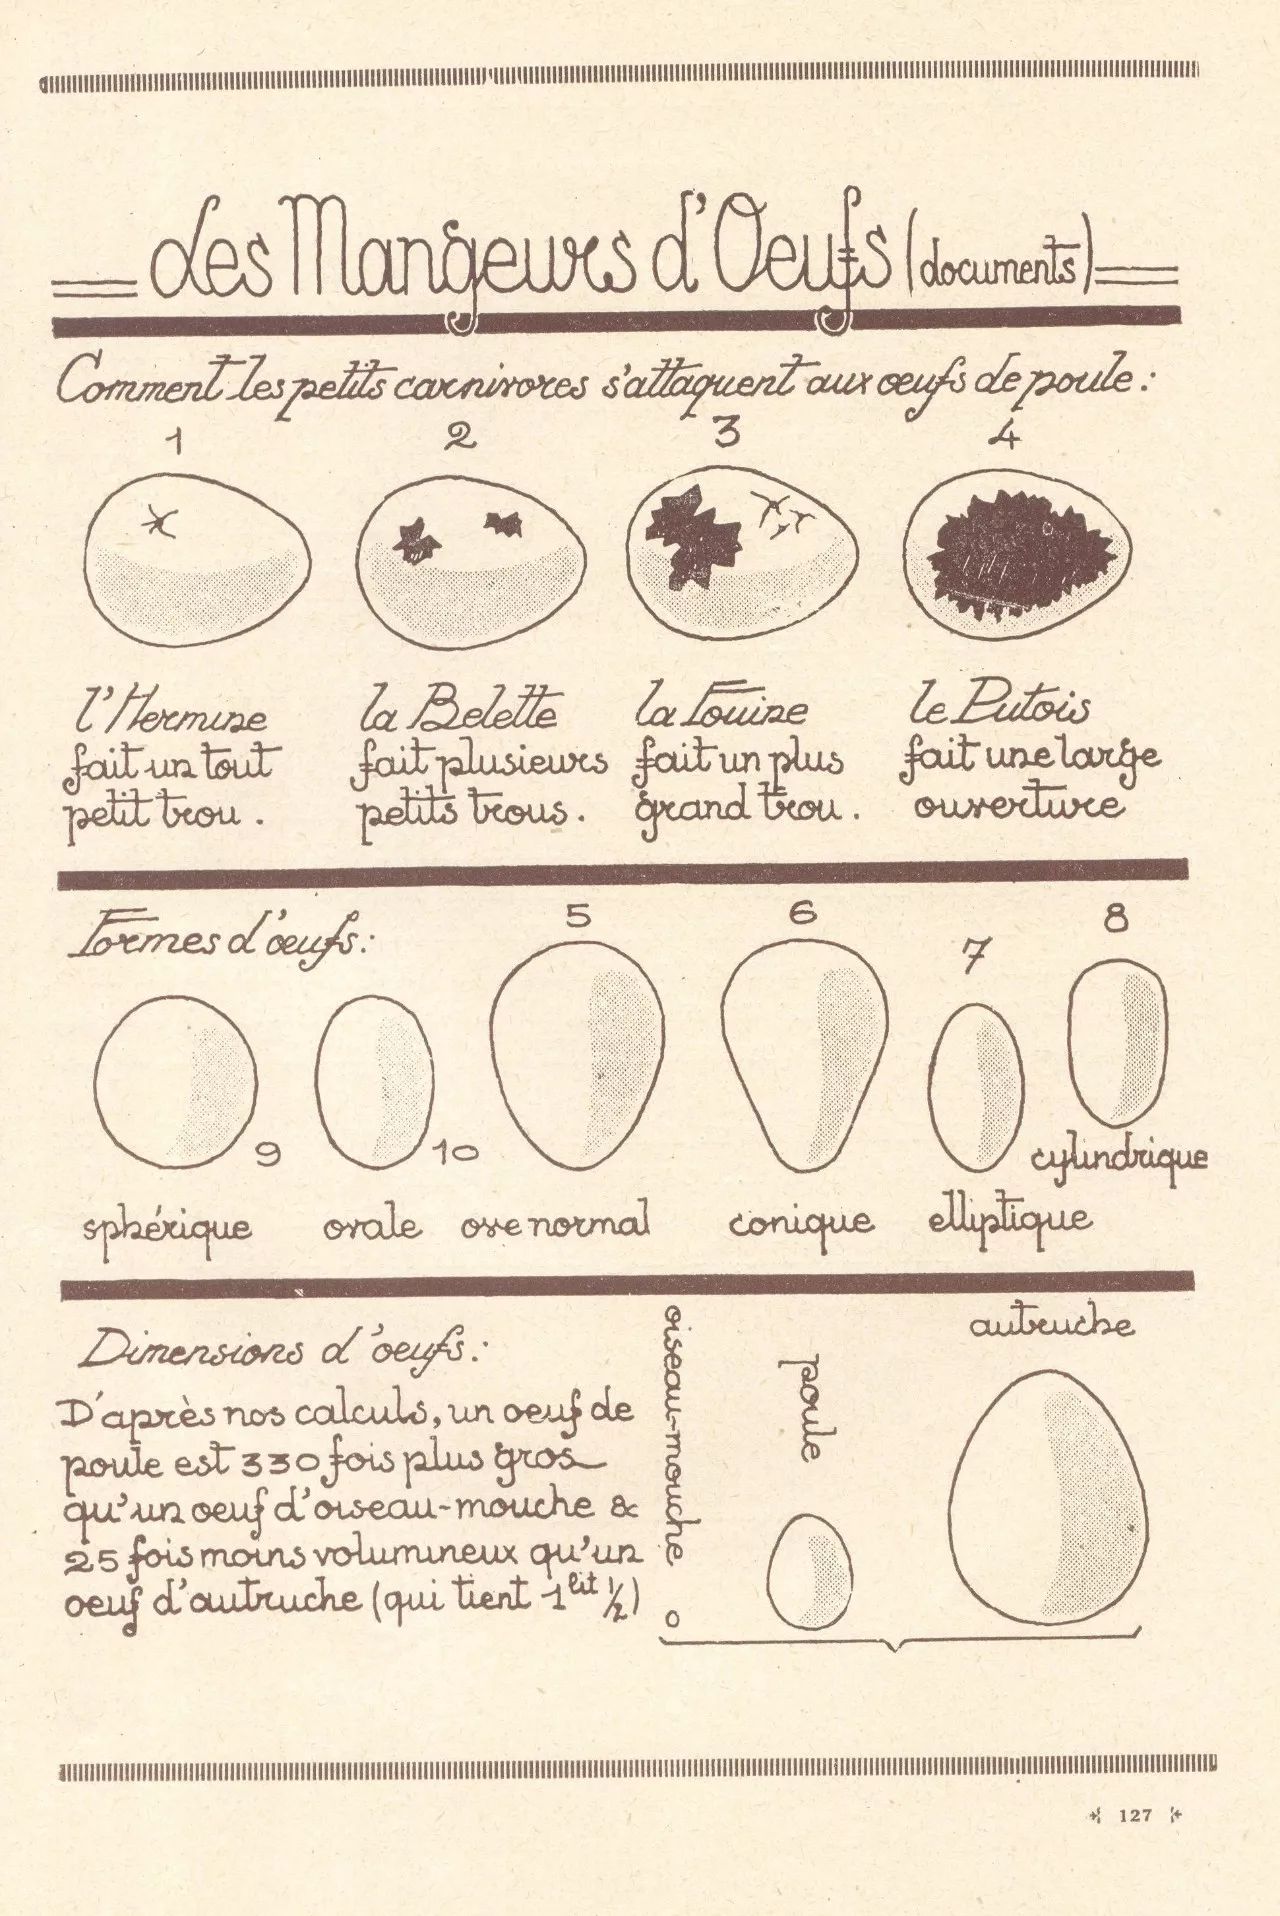 des Mangeurs d'Oeufs (documents)
Comment les petits carnivores s'attaquent aux œufs de poule :
1
2
3
4
l'Hermine
fait un tout
petit trou .
la Belette
fait plusieurs
petits trous .
la Fouine
fait un plus
grand trou .
le Putois
fait une large
ouverture
Formes d'œufs :
5
6
7
8
9
10
sphérique
ovale
ove normal
conique
elliptique
cylindrique
Dimensions d'oeufs :
D'après nos calculs, un oeuf de
poule est 330 fois plus gros
qu'un oeuf d'oiseau-mouche &
25 fois moins volumineux qu'un
oeuf d'autruche (qui tient 1 lit ½)
oiseau-mouche
poule
autruche
127